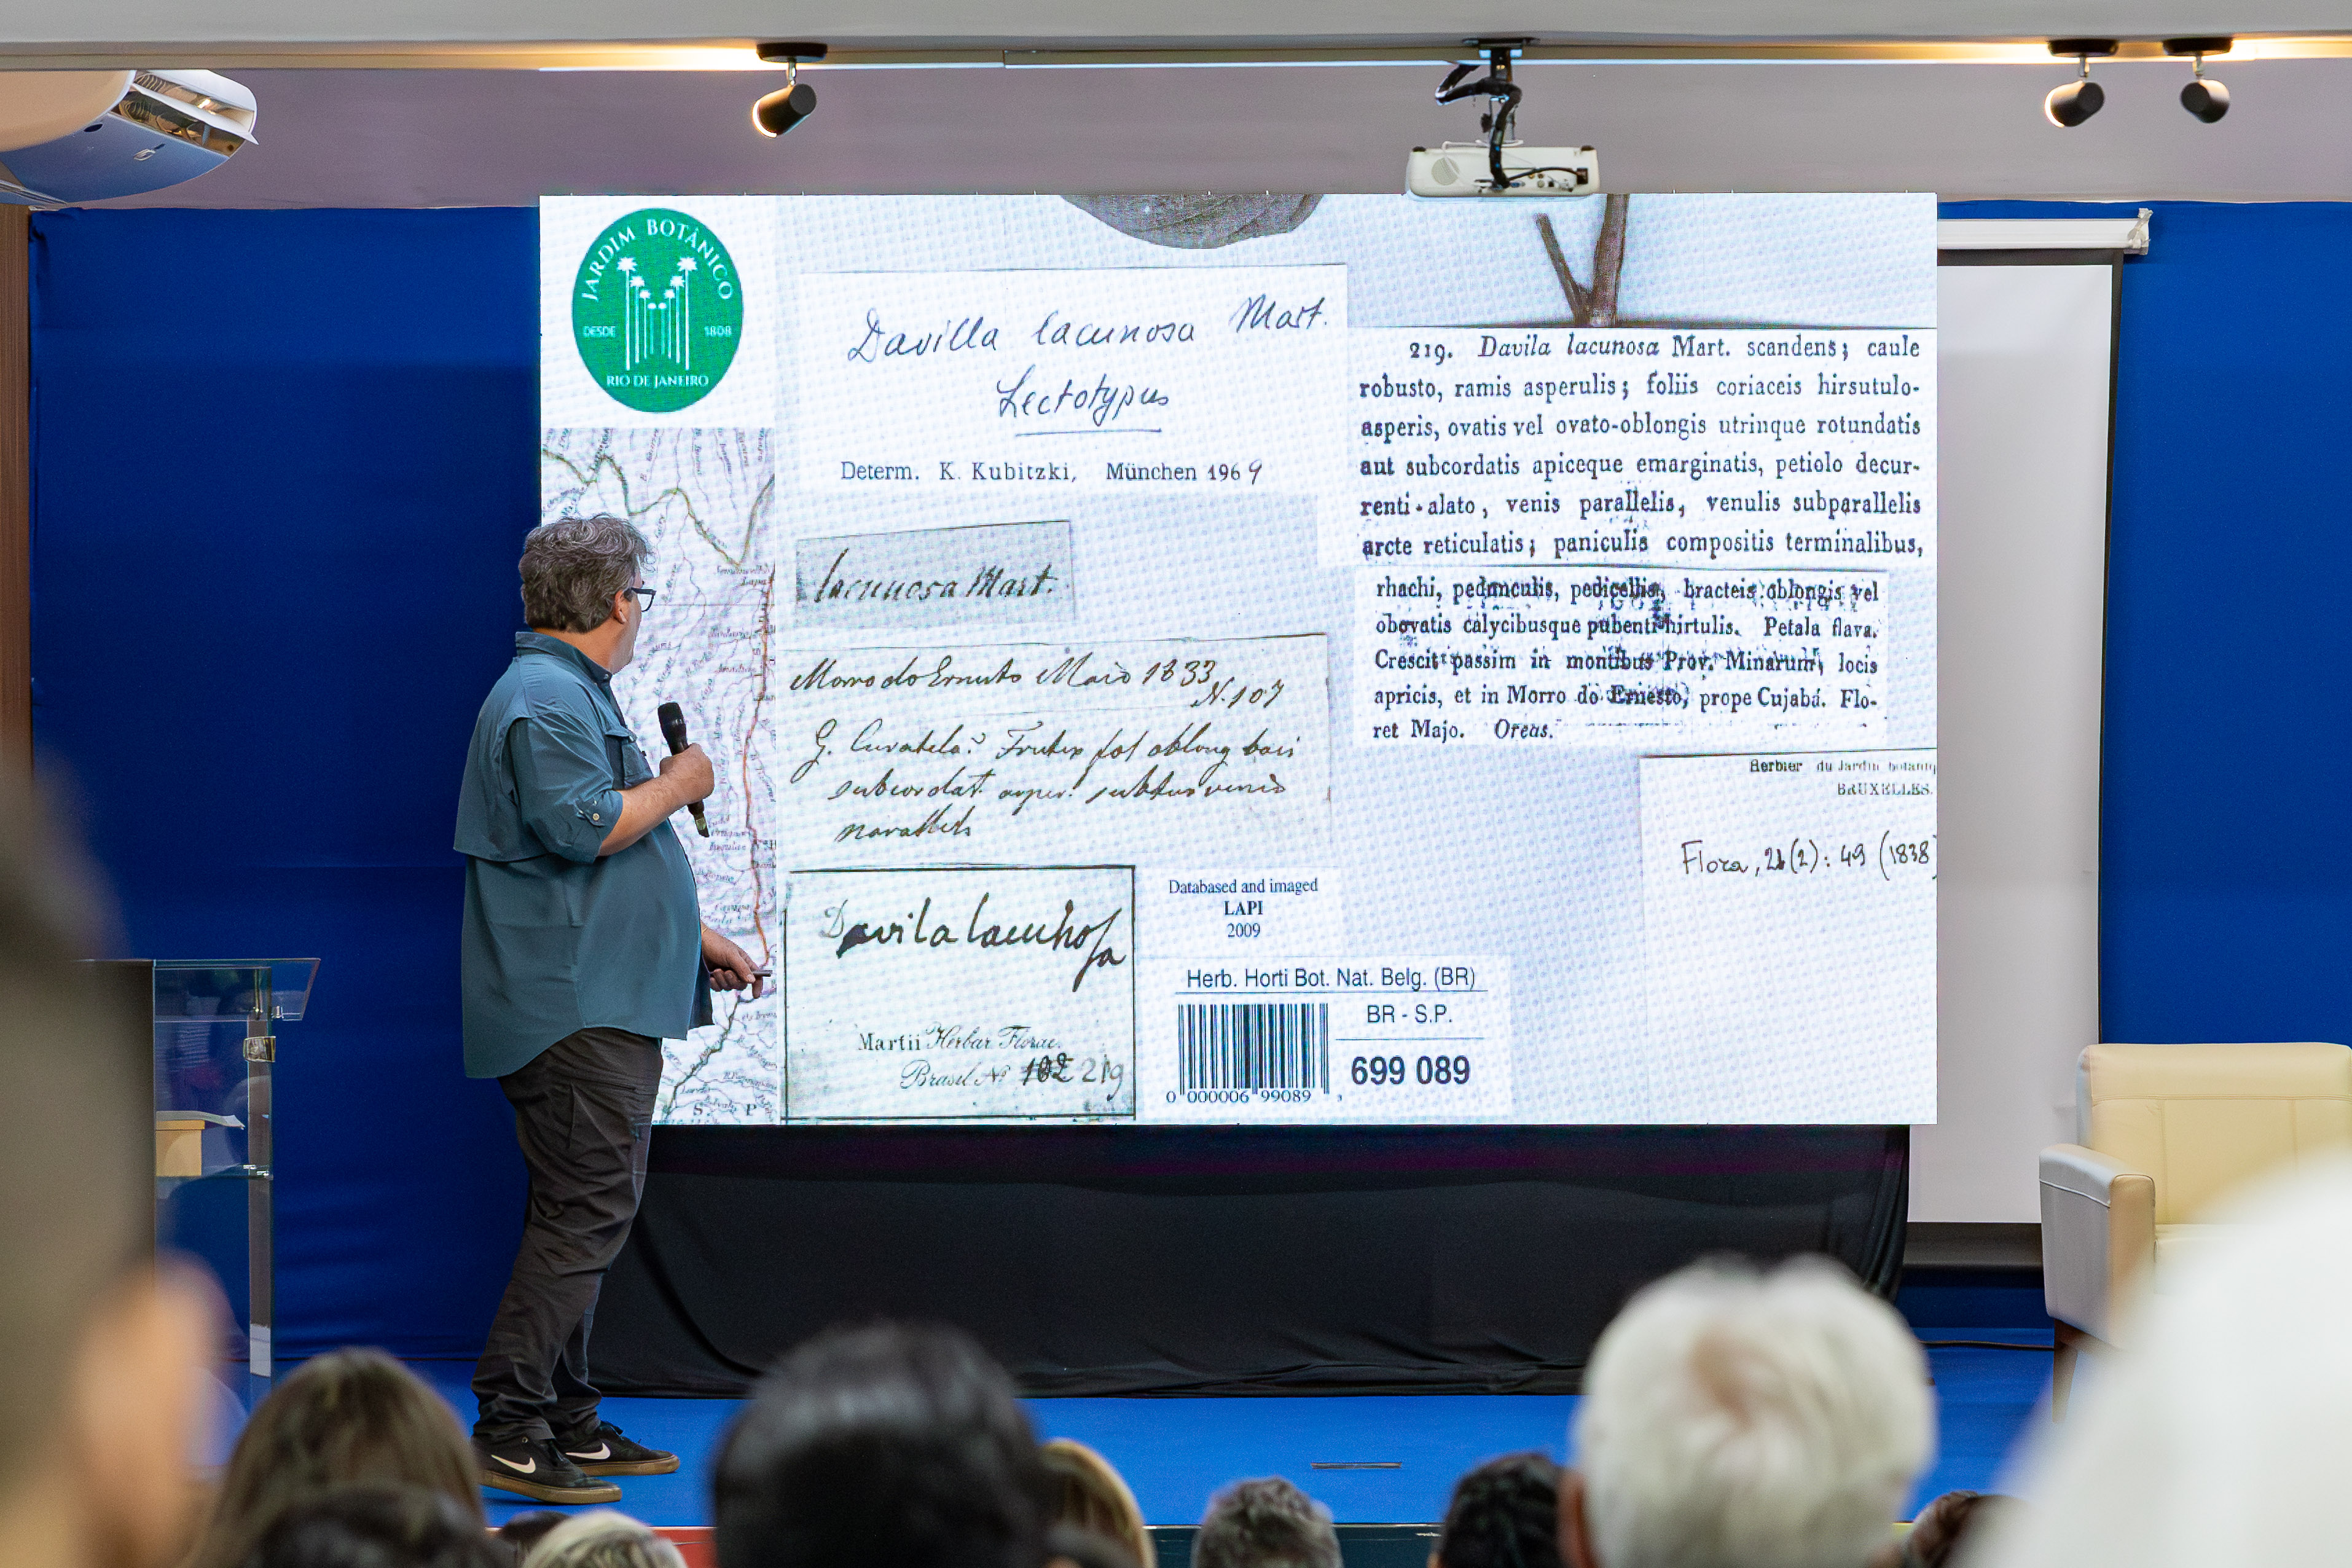 JARDIM BOTÂNICO
DESDE 1808
RIO DE JANEIRO
Davilla lacunosa Mart.
Lectotypus
Determ. K. Kubitzki, München 1969
lacunosa Mart.
Morro do Ernesto Maio 1833
N. 107
G. Curatela? Frutex fol oblong basi
subcordat. asper. subtus venis
Davila lacunosa
Martii Herbar. Florae.
Brasil. No 102 219
Databased and imaged
LAPI
2009
Herb. Horti Bot. Nat. Belg. (BR)
BR - S.P.
699 089
0 000006 99089
219. Davila lacunosa Mart. scandens; caule
robusto, ramis asperulis; foliis coriaceis hirsutulo-
asperis, ovatis vel ovato-oblongis utrinque rotundatis
aut subcordatis apiceque emarginatis, petiolo decur-
renti-alato, venis parallelis, venulis subparallelis
arcte reticulatis; paniculis compositis terminalibus,
rhachi, pedunculis, pedicellis, bracteis oblongis vel
obovatis calycibusque pubenti-hirtulis. Petala flava.
Crescit passim in montibus Prov. Minarum, locis
apricis, et in Morro do Ernesto, prope Cujabá. Flo-
ret Majo. Oreas.
Herbier du Jardin botaniq
BRUXELLES.
Flora, 21(2): 49 (1838)
S. P